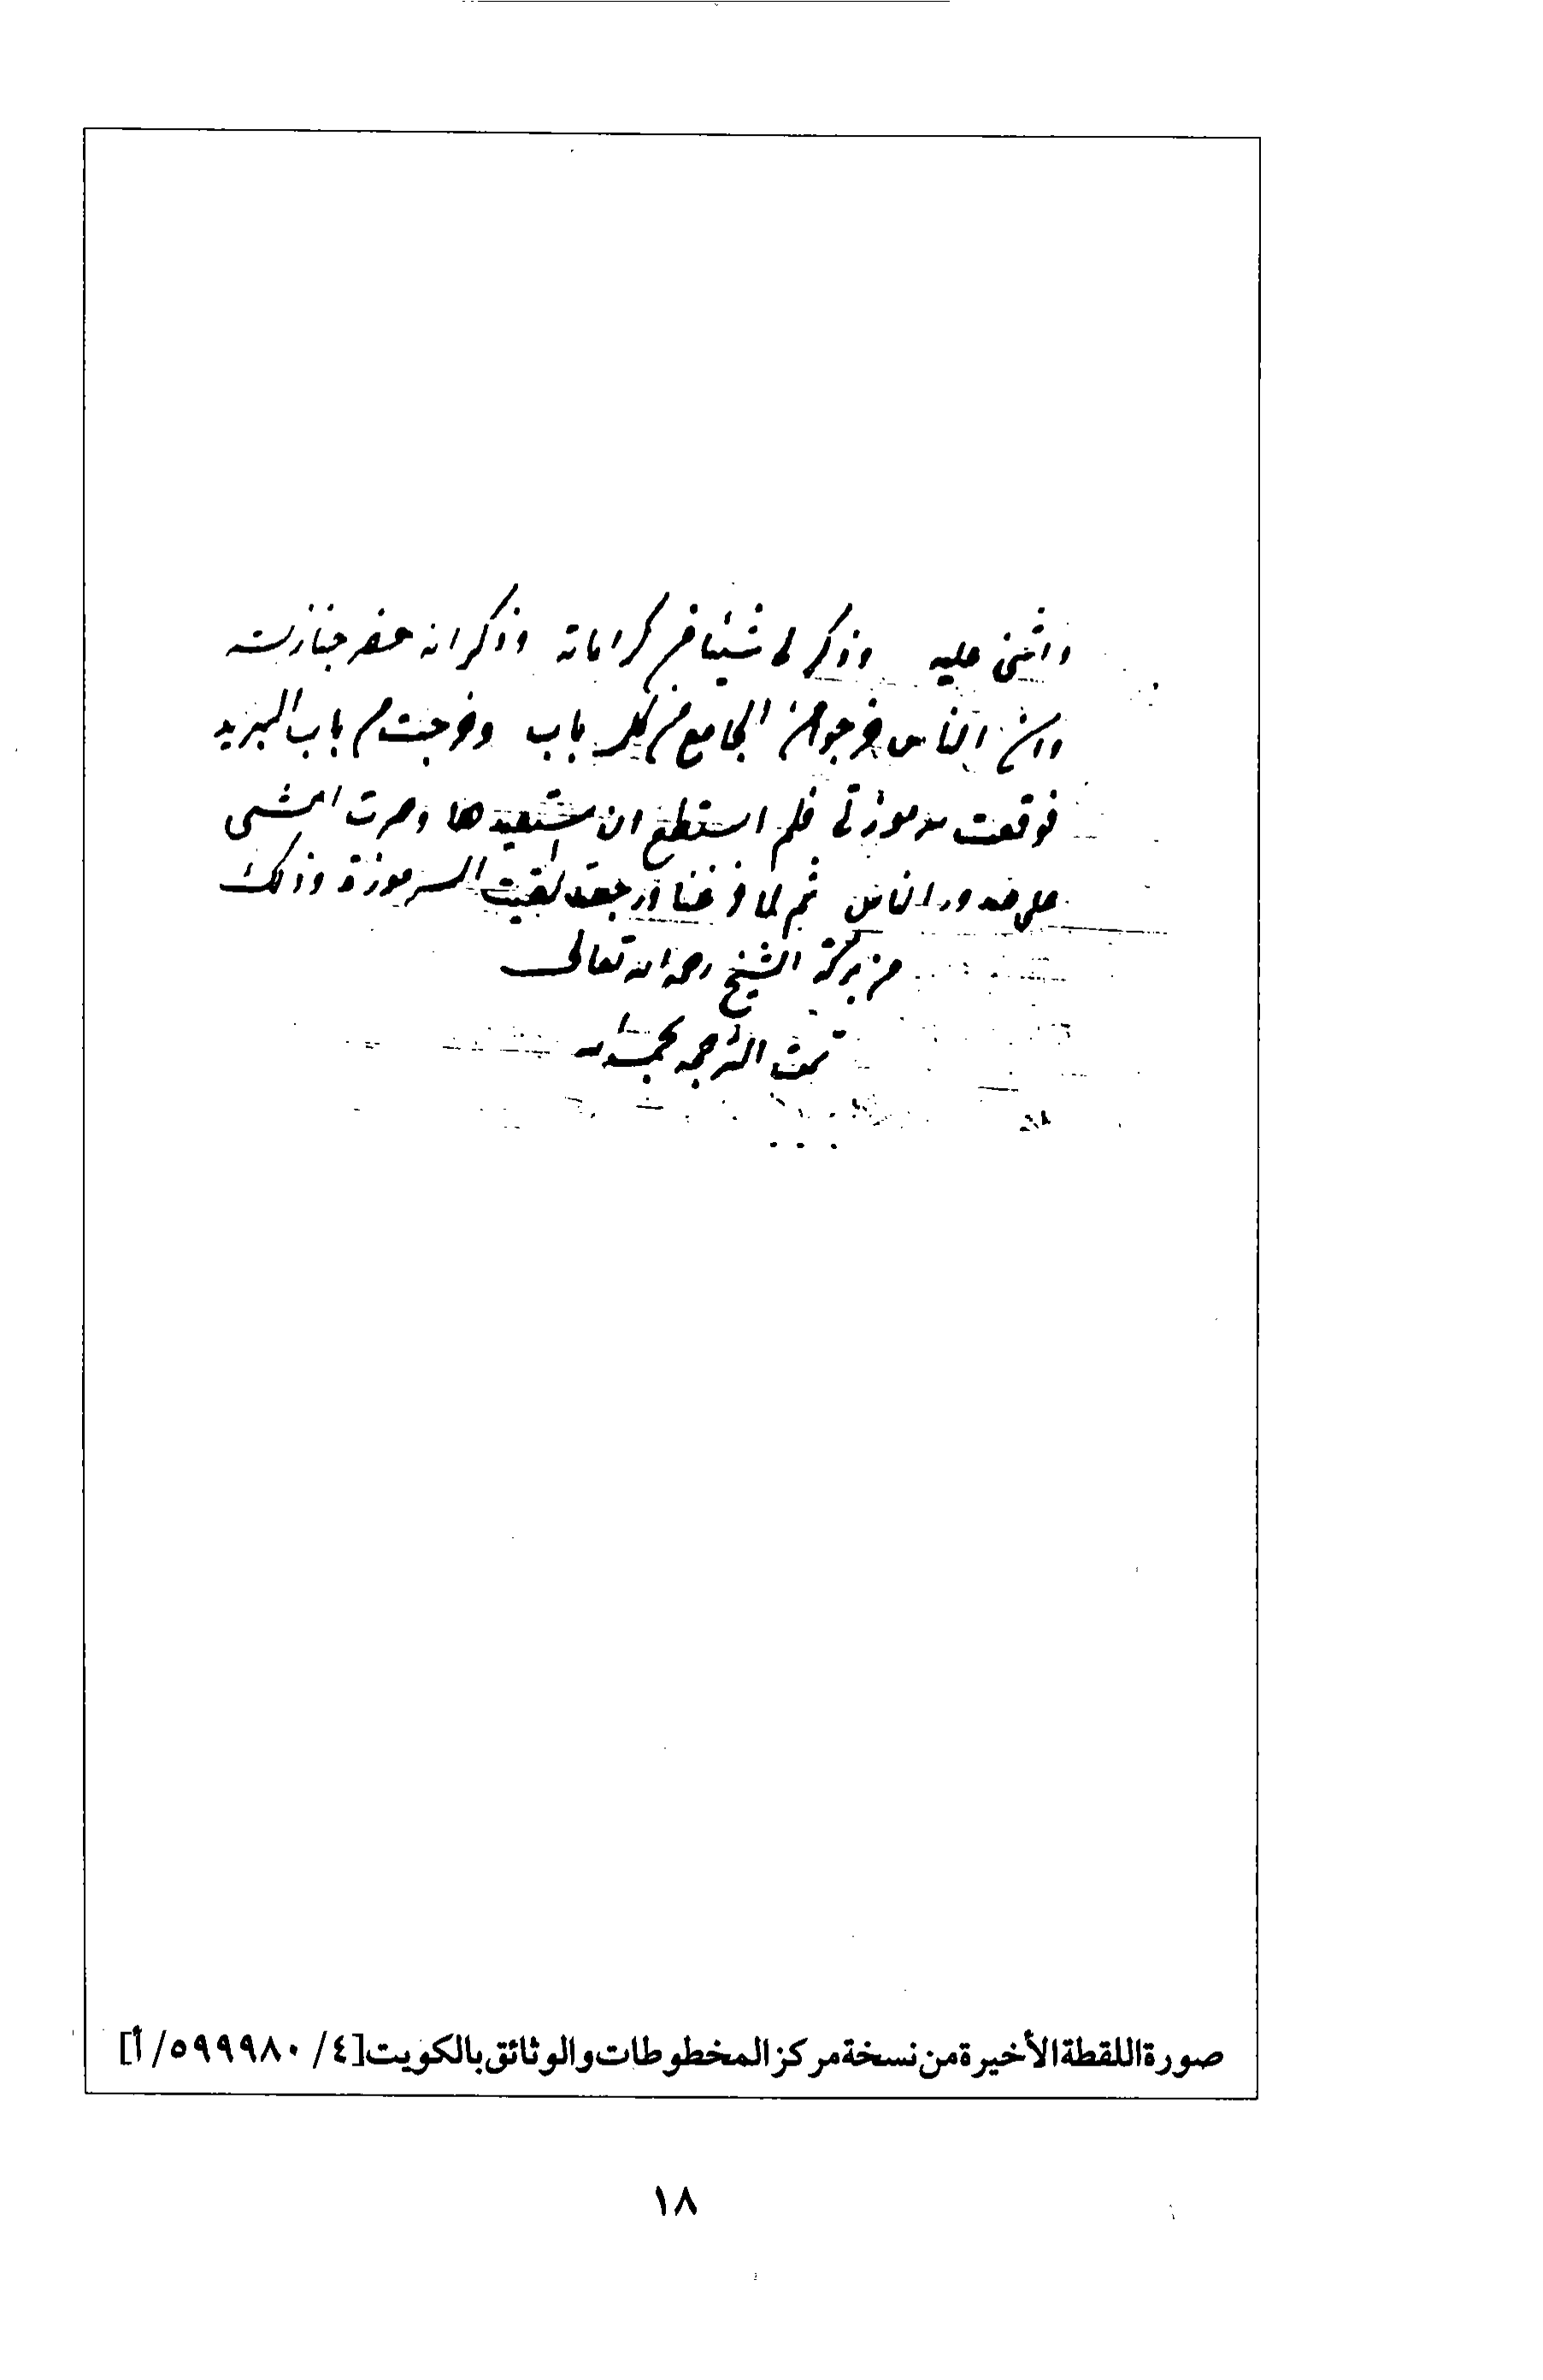 واثنى عليه وذكر لى شيئا من كراماته وذكر انه حضر جنازته
وان الناس خرجوا من الجامع من كل باب وخرجت من باب البريد
فوقعت سرموزتى فلم استطع ان استعيدها وصرت امشى
على صدور الناس ثم لما فرغنا ورجعت لقيت السرموزة وذلك
من بركة الشيخ رحمه الله تعالى
تمت الترجمه بحمد الله
صورة اللقطة الأخيرة من نسخة مركز المخطوطات والوثائق بالكويت [٤/ ٥٩٩٩٨٠/أ]
١٨